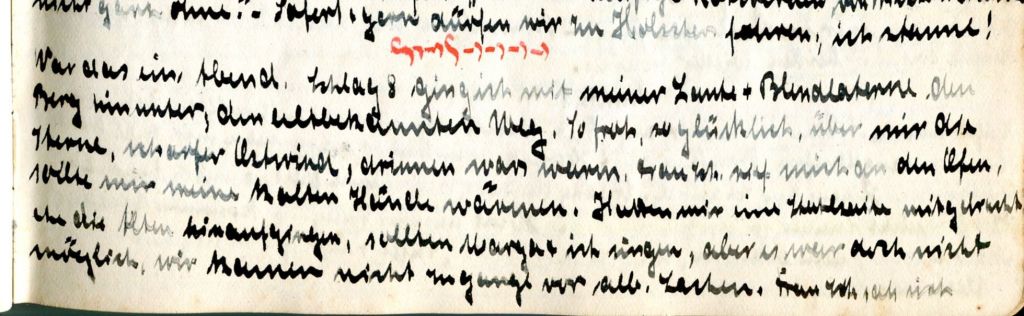 nicht ganz ohne! - Sofort + gern dürfen wir zu Holsters fahren, ich staune!
War das ein Abend. Schlag 8 ging ich mit meiner Laute + Blendlaterne den
Berg hinunter, den altbekannten Weg. So froh, so glücklich, über mir die
Sterne, scharfer Ostwind, drinnen war's warm. Frau Sch. rief mich an den Ofen,
sollte mir meine kalten Hände wärmen. Hatten mir eine mitgebracht
ehe die Alten hinaufgingen, sollten Marga + ich singen, aber es war doch nicht
möglich, wir kamen nicht in gange vor all. Lachen. Frau Sch. sah